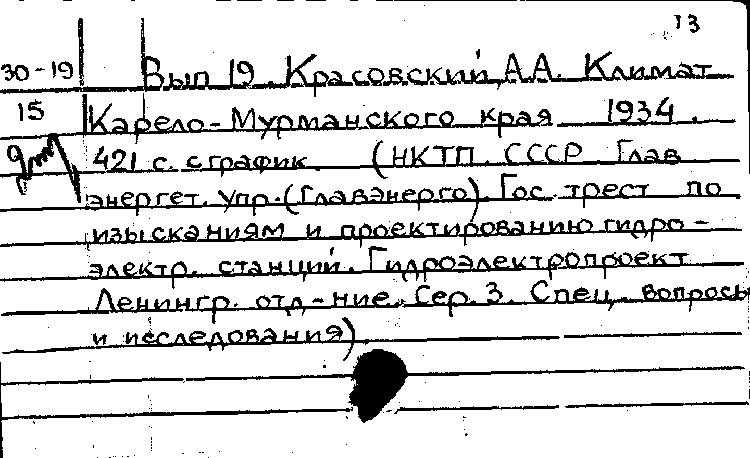 13
30-19 Вып 19. Красовский, А.А. Климат
15 Карело-Мурманского края 1934.
421 с. с график. (НКТП. СССР Глав
энергет. упр. (Главэнерго). Гос. трест по
изысканиям и проектированию гидро-
электр. станций. Гидроэлектропроект
Ленингр. отд-ние. Сер. 3. Спец. вопросы
и исследования).